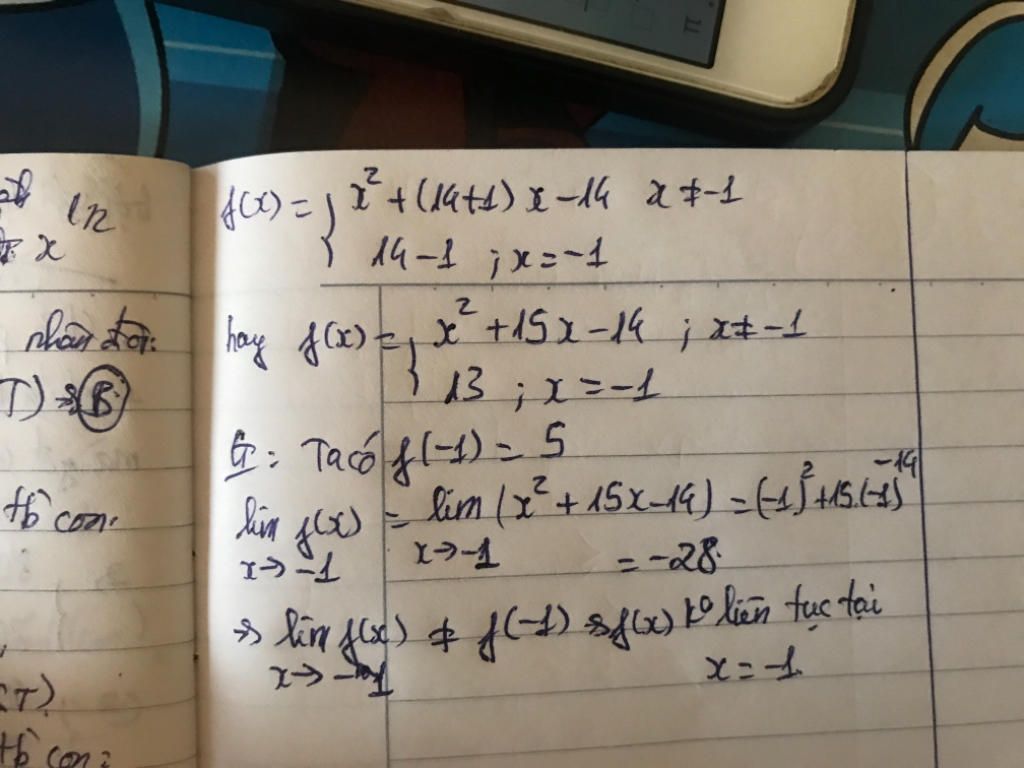 ln
x
nhân đôi:
T) ⇒ B
tb con.
T)
tb con:
f(x) = { x² + (14+1) x - 14 x ≠ -1
14 - 1 ; x = -1
hay f(x) = { x² + 15x - 14 ; x ≠ -1
13 ; x = -1
G: Ta có f(-1) = 5
lim f(x) = lim (x² + 15x - 14) = (-1)² + 15.(-1) - 14
x → -1 x → -1 = -28.
⇒ lim f(x) ≠ f(-1) ⇒ f(x) k° liên tục tại
x → -1 x = -1.